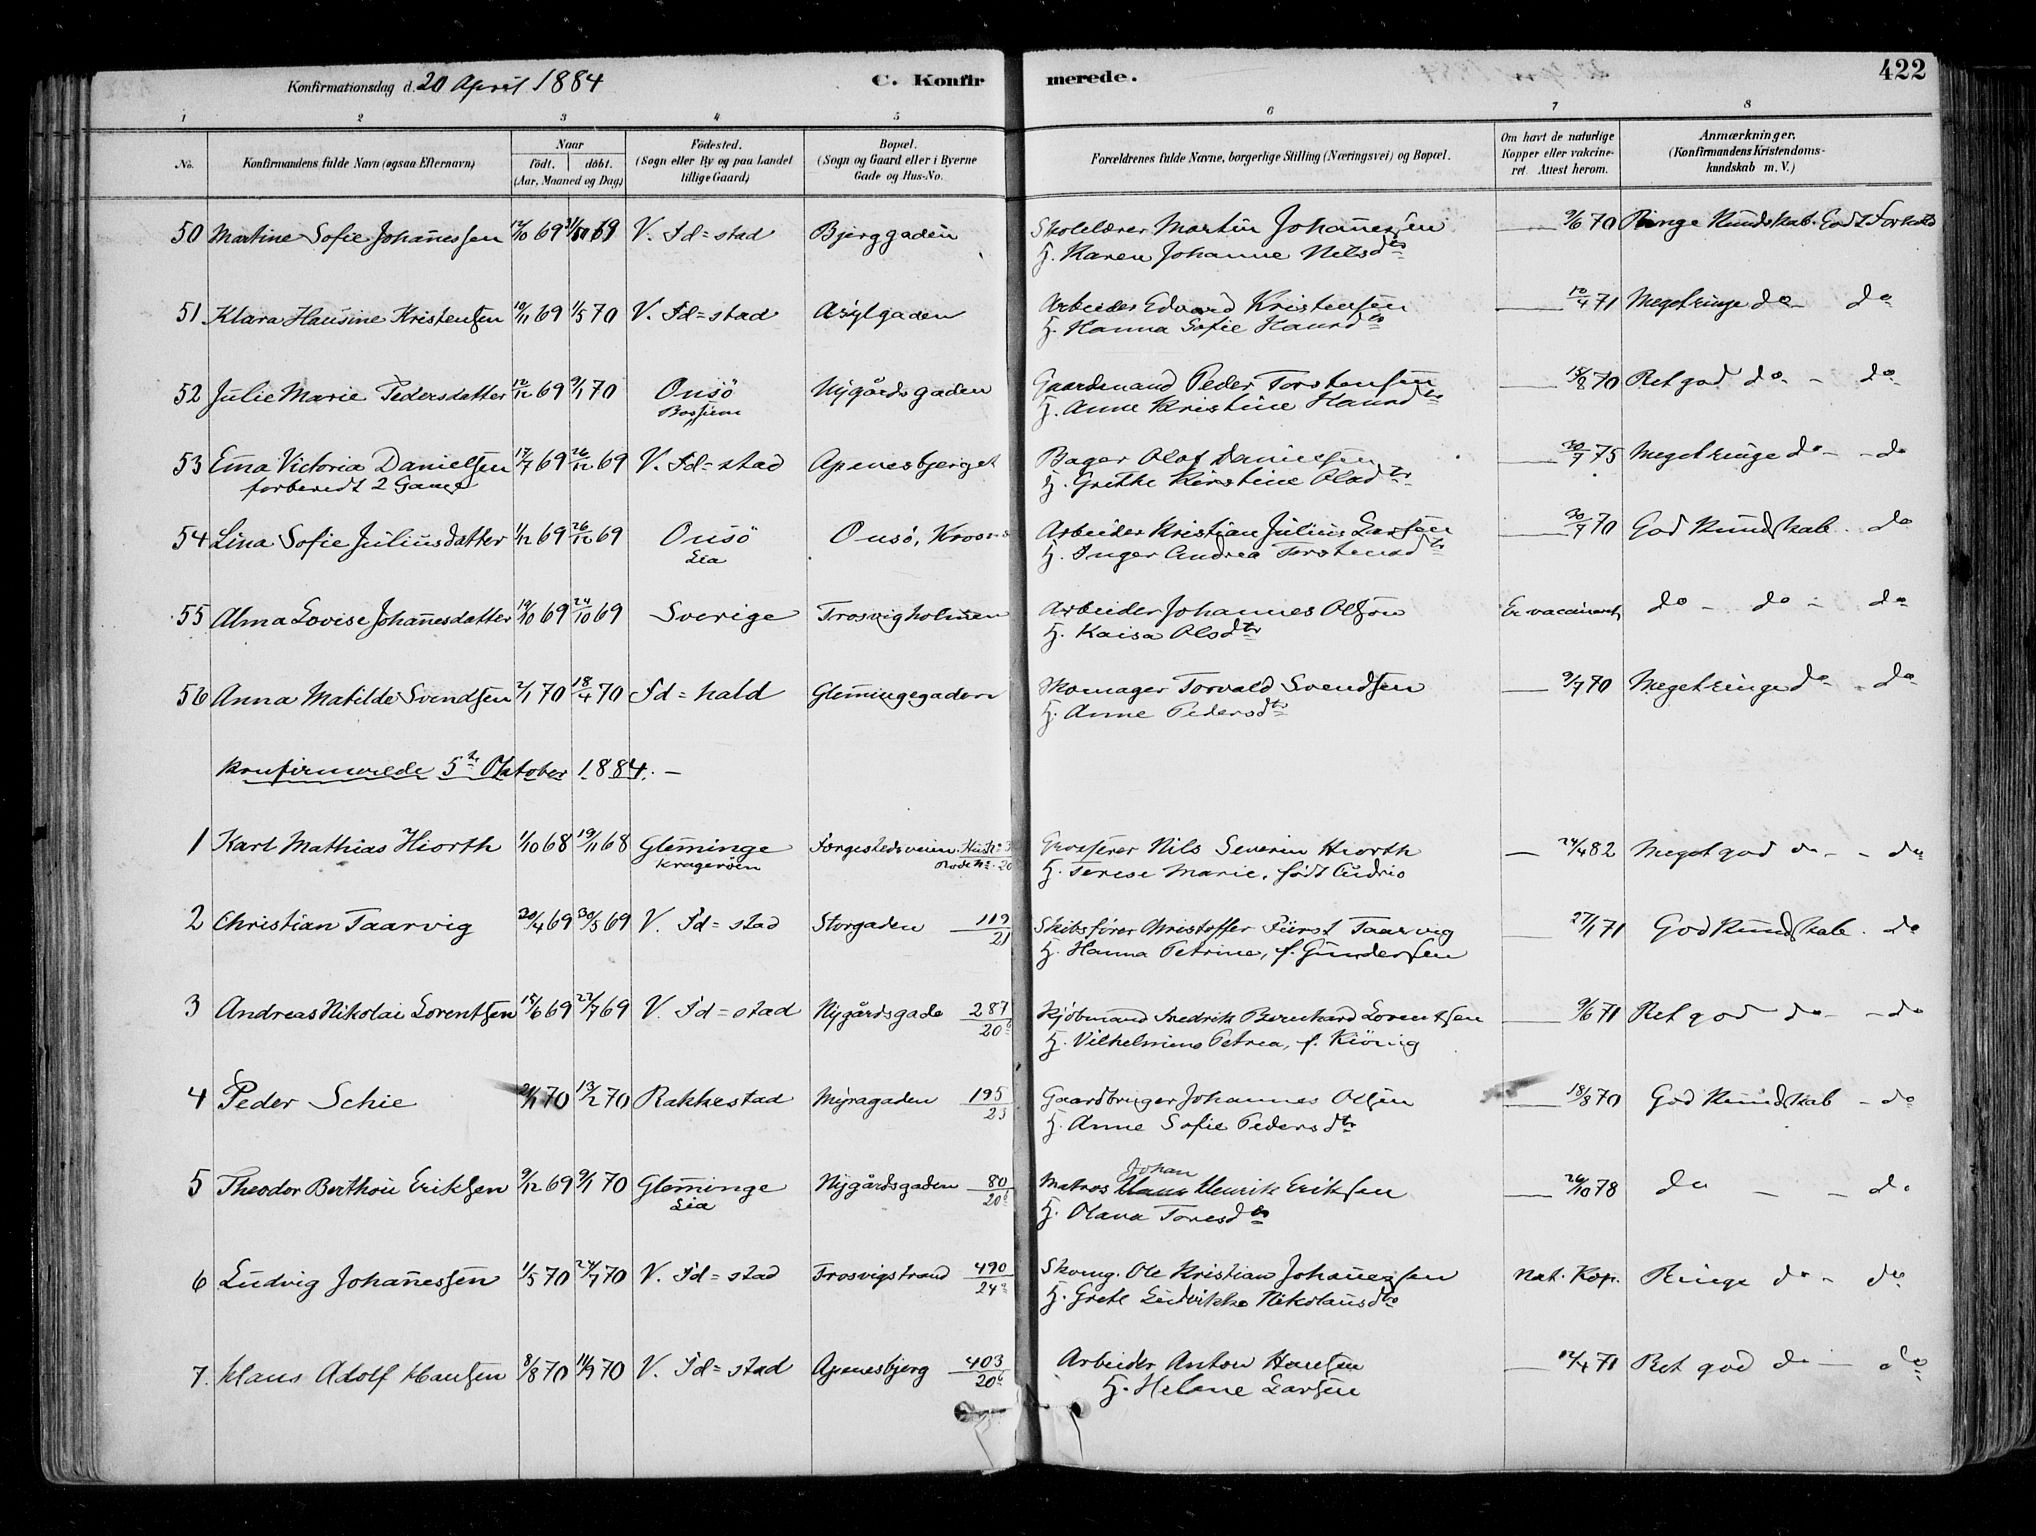 Konfirmationsdag d. 20 April 1884 C. Konfirmerede. 422
1 2 3 4 5 6 7 8
No. Konfirmandens fulde Navn (ogsaa Efternavn) Naar født. døbt. (Aar, Maaned og Dag) Fødested. (Sogn eller By og paa Landet tillige Gaard) Bopæl. (Sogn og Gaard eller i Byerne Gade og Hus-No. Forældrenes fulde Navne, borgerlige Stilling (Næringsvei) og Bopæl. Om havt de naturlige Kopper eller vakcineret. Attest herom. Anmærkninger. (Konfirmandens Kristendomskundskab m. V.)
50 Martine Sofie Johanessen 12/10 69 31/10 69 V. Fd=stad Bjerggaden Skolelærer Martin Johanessen — 9/6 70 Ringe Kundskab. Godt Forhold
H. Karen Johanne Nilsdtr
51 Klara Hansine Kristensen 19/11 69 1/5 70 V. Fd=stad Asylgaden Arbeider Edvard Kristensen — 12/4 71 Meget ringe do do
H. Hanna Sofie Hansdtr
52 Julie Marie Pedersdatter 12/12 69 9/1 70 Onsö Nygårdsgaden Gaardmand Peder Torstensen — 15/8 70 Ret god do - do
H. Anne Kristine Hansdtr
53 Ema Victoria Danielsen 17/7 69 26/12 69 V. Fd=stad Apenesbjerget Bager Olof Danielsen — 30/7 75 Meget ringe do - do
forberedt 2 Gange H. Grethe Kirstine Olsdtr
54 Lina Sofie Juliusdatter 1/12 69 26/12 69 Onsö Onsö, Arbeider Kristian Julius Larsen — 30/7 70 God Kundskab. do
Lia H. Inger Andrea Torstensdtr
55 Alma Lovise Johanesdatter 19/10 69 24/10 69 Sverige Trosvigholmen Arbeider Johannes Olsson Er vaccineret do - do - do
H. Kaisa Olsdtr
56 Anna Matilde Svendsen 2/1 70 18/4 70 Fd=hald Glemingegaden Skomager Torvald Svendsen — 9/7 70 Meget ringe do - do
H. Anne Pedersdtr
Konfirmerede 5te Oktober 1884. —
1 Karl Mathias Hiorth 1/10 68 19/11 68 Gleminge Færgestedsveien Grosserer Nils Severin Hiorth — 24/4 82 Meget god do - - do
Kragerøen H. Terese Marie, født
2 Christian Taarvig 20/4 69 30/5 69 V. Fd=stad Storgaden 119/21 Skibsfører Christoffer Fürst Taarvig 27/1 71 God Kundskab. do
H. Hanna Petrine, f. Gundersen
3 Andreas Nikolai Lorentsen 15/6 69 22/7 69 V. Fd=stad Nygårdsgade 287/20b Kjöbmand Fredrik Bernhard Lorentsen — 9/6 71 Ret god do - - do
H. Vilhelmine Petrea, f. Kiönig
4 Peder Schie 2/1 70 13/2 70 Rakkestad Myragaden 195/23 Gaardbruger Johannes Olsen — 18/8 70 God Kundskab - do
H. Anne Sofie Pedersdtr
Johan
5 Theodor Berthin Eriksen 9/12 69 9/1 70 Gleminge Nygårdsgaden 80/20b Matros Hans Henrik Eriksen — 26/10 78 do - - do
Lia H. Olava Toresdtr
6 Ludvig Johanessen 1/5 70 24/7 70 V. Fd=stad Trosvigstrand 490/24a Skomg. Ole Kristian Johanessen Nat. Kop. Ringe do - do
H. Grete Ludvikke Nikolausdtr
7 Hans Adolf Hansen 8/8 70 11/9 70 V. Fd=stad Apenesbjerg 403/20b Arbeider Anton Hansen — 12/4 71 Ret god do - do
H. Helene Larsen